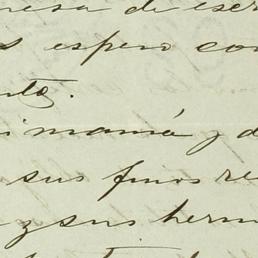 mesa de escr
s espero con
nte.
i mamá y d
sus finos re
a y sus herm